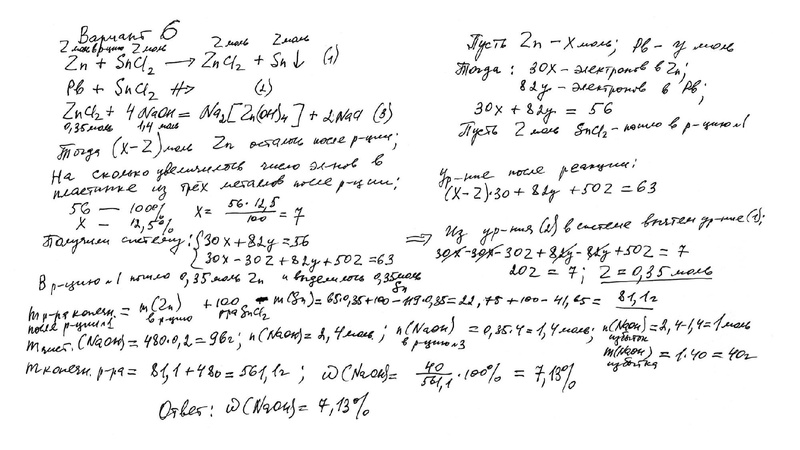 Вариант 6
Z моль в р-цию Z моль Z моль Z моль
Zn + SnCl2 → ZnCl2 + Sn↓ (1)
Pb + SnCl2 ↛ (2)
ZnCl2 + 4NaOH = Na2[Zn(OH)4] + 2NaCl (3)
0,35моль 1,4 моль
Тогда (X-Z)моль Zn осталось после р-ции;
На сколько увеличилось число эл-нов в
пластинке из трёх металлов после р-ции;
56 — 100%
X — 12,5%
X = 56·12,5/100 = 7
Получили систему: {30x+82y=56
30x-30z+82y+50z=63
Пусть Zn - X моль; Pb - y моль
Тогда: 30X - электронов в Zn;
82y - электронов в Pb;
30x + 82y = 56
Пусть Z моль SnCl2 - пошло в р-цию №1
Ур-ние после реакции:
(X-Z)·30 + 82y + 50Z = 63
⇒ Из ур-ния (2) в системе вычтем ур-ние (1);
30x-30x-30z+82y-82y+50z = 7
20z = 7; Z = 0,35 моль
В р-цию №1 пошло 0,35моль Zn и выделилось 0,35моль Sn
m р-ра конечн. после р-ции №1 = m(Zn) в р-цию + 100 р-ра SnCl2 - m(Sn) = 65·0,35+100-119·0,35=22,75+100-41,65= 81,1г
m чист.(NaOH)=480·0,2=96г; n(NaOH)=2,4моль; n(NaOH) в р-цию №3 = 0,35·4=1,4моль; n(NaOH) избыток =2,4-1,4=1моль
m(NaOH) избытка = 1·40 = 40г
m конечн. р-ра = 81,1+480=561,1г; ω(NaOH)= 40/561,1 ·100% = 7,13%
Ответ: ω(NaOH)= 7,13%